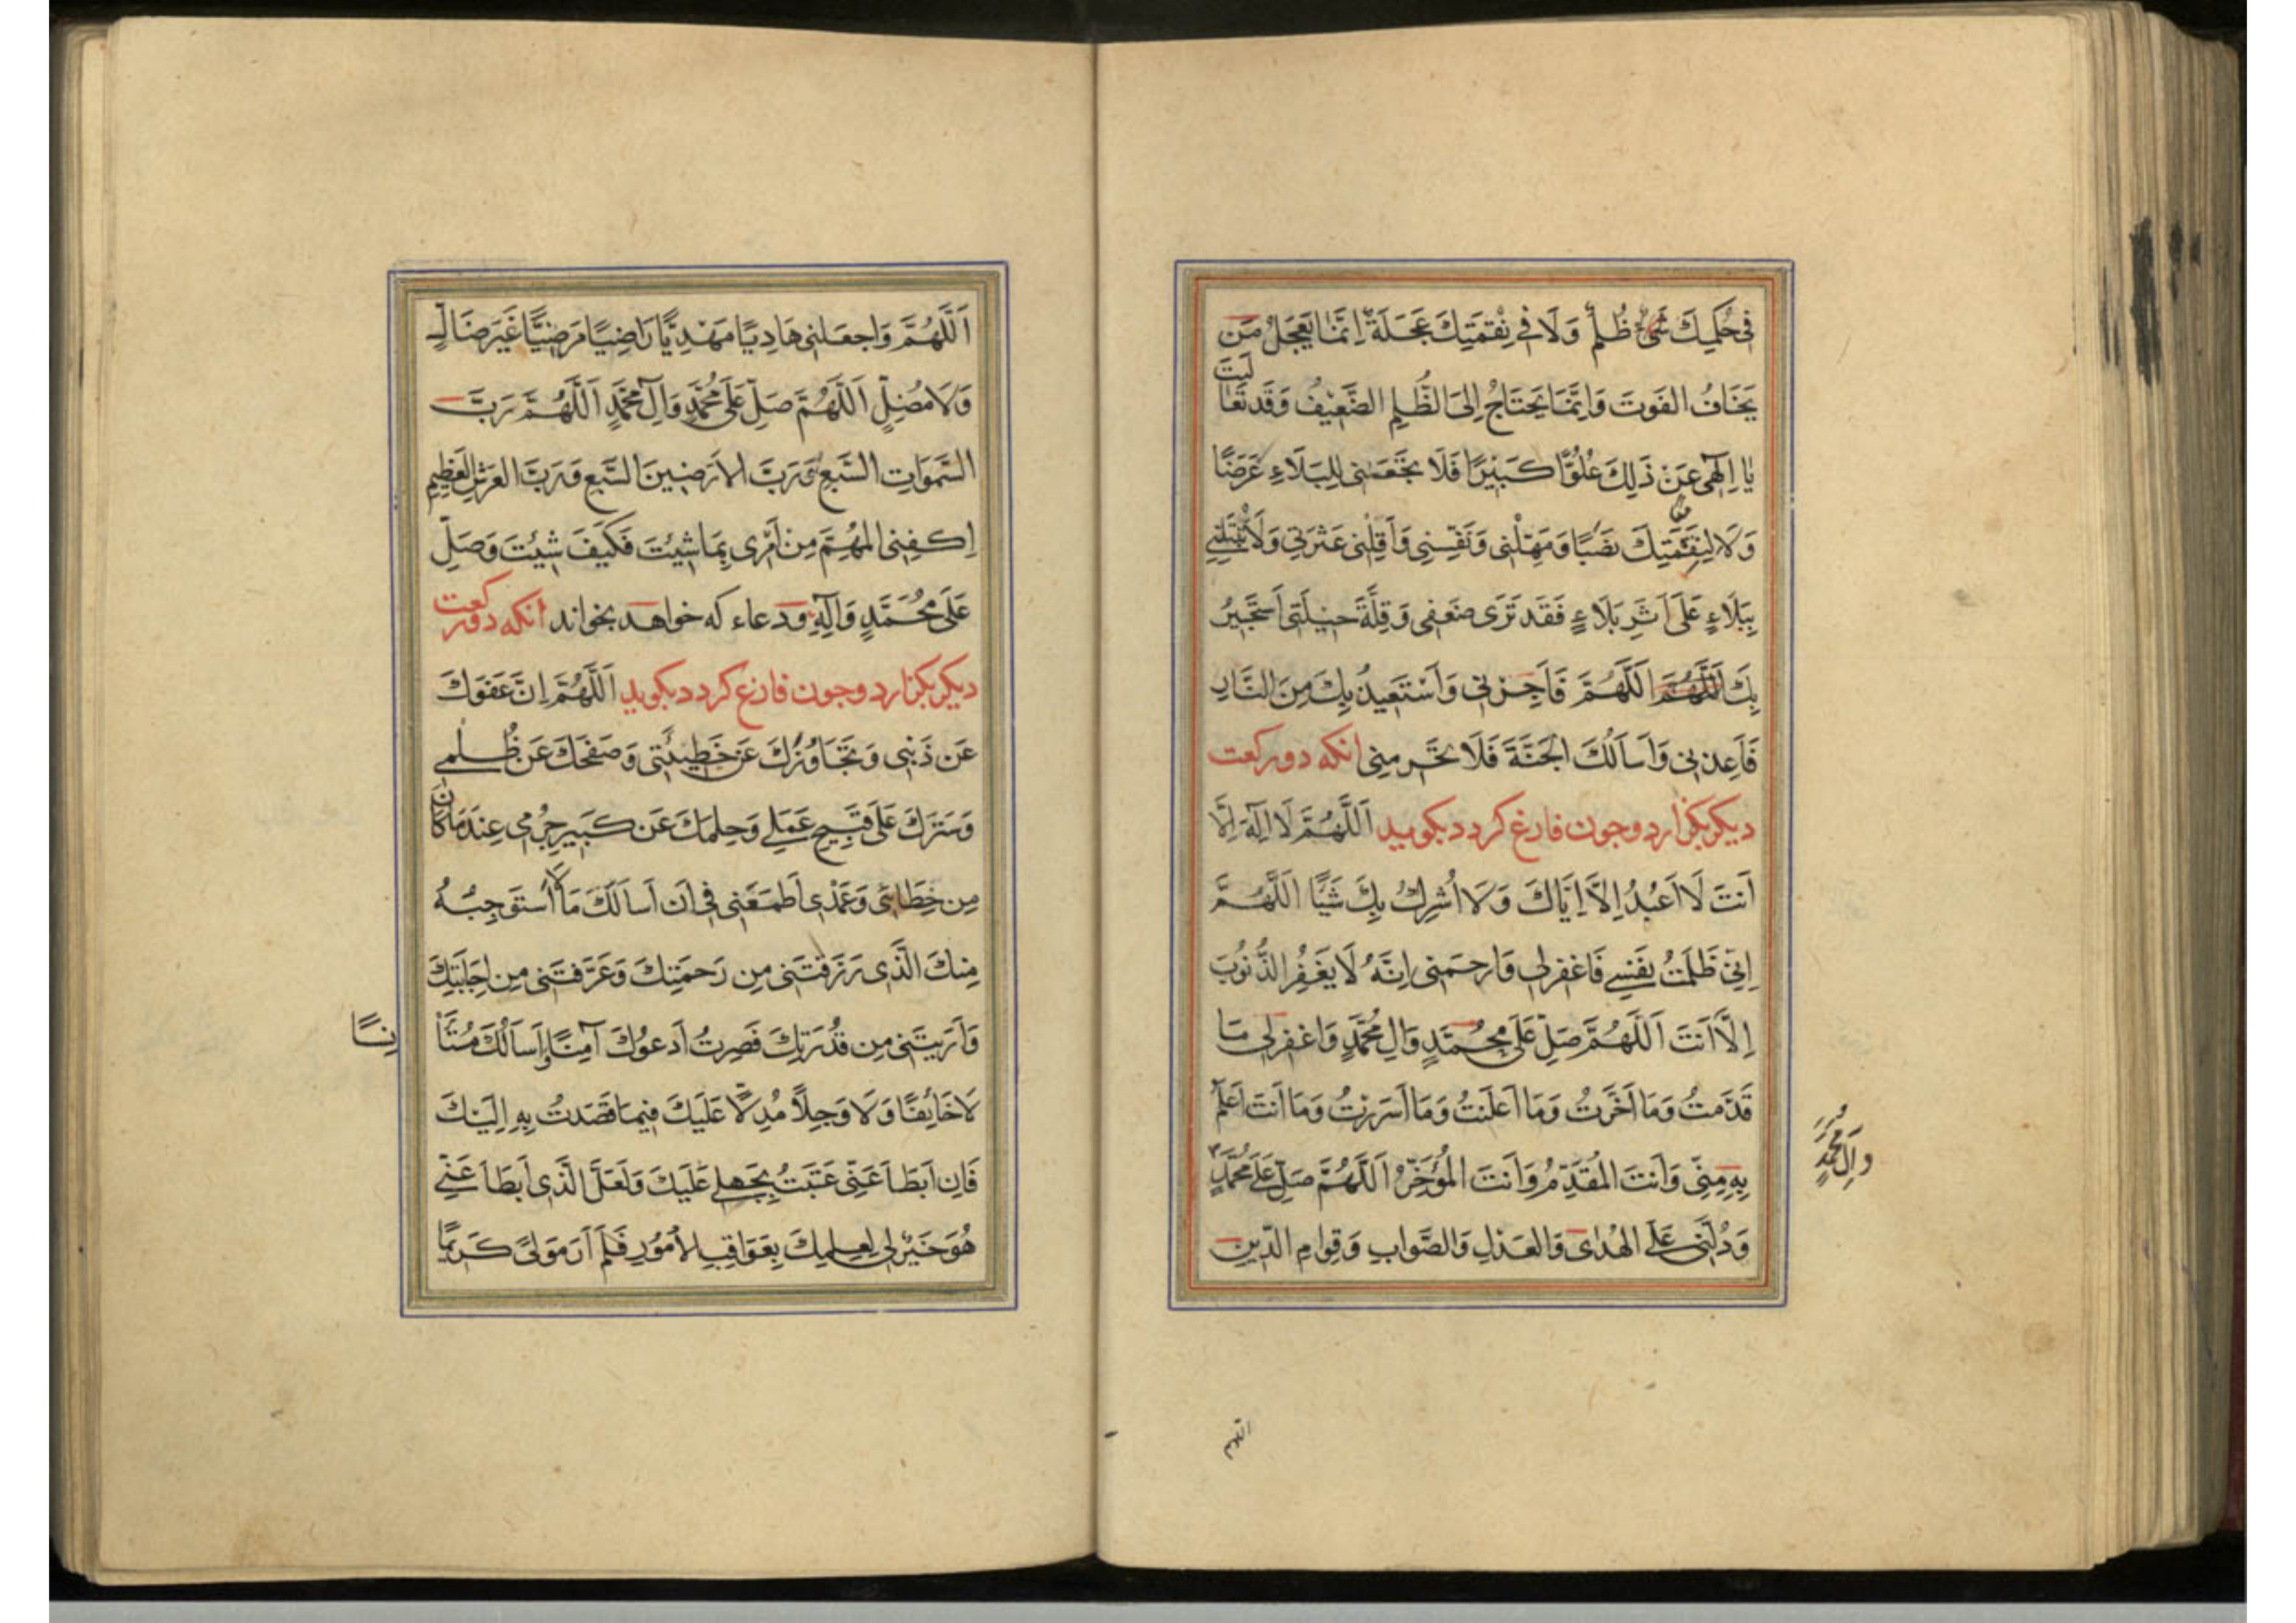 فِى حُكْمِكَ شَىْءٌ ظُلْمٌ وَلَا فِى نِقْمَتِكَ عَجَلَةٌ اِنَّمَا يَعْجَلُ مَن
يَخَافُ الفَوتَ وَاِنَّمَا يَحتَاجُ اِلَى الظُّلمِ الضَّعِيفُ وَقَد تَعَالَيتَ
يَا اِلٰهِى عَن ذٰلِكَ عُلُوًّا كَبِيرًا فَلَا تَجْعَلنِى لِلبَلَاءِ غَرَضًا
وَلَا لِنِقْمَتِكَ نَصَبًا وَمَهِّلْنِى وَنَفِّسنِى وَاَقِلْنِى عَثرَتِى وَلَا تُتْبِعنِى
بِبَلَاءٍ عَلَى اَثَرِ بَلَاءٍ فَقَد تَرَى ضَعفِى وَقِلَّةَ حِيلَتِى اَستَجِيرُ
بِكَ اَللّٰهُمَّ اَللّٰهُمَّ فَاَجِرنِى وَاَسْتَعِيذُ بِكَ مِنَ النَّارِ
فَاَعِذنِى وَاَسَالُكَ الجَنَّةَ فَلَا تَحرِمنِى انكه دوركعت
ديكر بكزارد وجون فارغ كردد بكويد اَللّٰهُمَّ لَا اِلٰهَ اِلَّا
اَنتَ لَا اَعبُدُ اِلَّا اِيَّاكَ وَلَا اُشرِكُ بِكَ شَيئًا اَللّٰهُمَّ
اِنِّى ظَلَمتُ نَفسِى فَاغفِرلِى وَارحَمنِى اِنَّهُ لَا يَغفِرُ الذُّنُوبَ
اِلَّا اَنتَ اَللّٰهُمَّ صَلِّ عَلَى مُحَمَّدٍ وَالِ مُحَمَّدٍ وَاغفِرلِى مَا
قَدَّمتُ وَمَا اَخَّرتُ وَمَا اَعلَنتُ وَمَا اَسرَرتُ وَمَا اَنتَ اَعلَمُ
بِهِ مِنِّى وَاَنتَ المُقَدِّمُ وَاَنتَ المُؤَخِّرُ اَللّٰهُمَّ صَلِّ عَلَى مُحَمَّدٍ
وَالِ مُحَمَّدٍ
وَدُلَّنِى عَلَى الهُدٰى وَالعَدلِ وَالصَّوَابِ وَقِوَامِ الدِّينِ
اللهم
اَللّٰهُمَّ وَاجعَلنِى هَادِيًا مَهْدِيًّا رَاضِيًا مَرضِيًّا غَيرَ ضَالٍّ
وَلَا مُضِلٍّ اَللّٰهُمَّ صَلِّ عَلَى مُحَمَّدٍ وَآلِ مُحَمَّدٍ اَللّٰهُمَّ رَبَّ
السَّمٰوَاتِ السَّبعِ وَرَبَّ الاَرَضِينَ السَّبعِ وَرَبَّ العَرشِ العَظِيمِ
اِكفِنِى المُهِمَّ مِن اَمْرِى بِمَا شِئتَ فَكَيفَ شِئتَ وَصَلِّ
عَلَى مُحَمَّدٍ وَآلِهِ ودعاء كه خواهد بخواند انكه دوركعت
ديكر بكزارد وجون فارغ كردد بكويد اَللّٰهُمَّ اِنَّ عَفوَكَ
عَن ذَنبِى وَتَجَاوُزَكَ عَن خَطِيئَتِى وَصَفحَكَ عَن ظُلمِى
وَسَترَكَ عَلَى قَبِيحِ عَمَلِى وَحِلمَكَ عَن كَبِيرِ جُرمِى عِندَ مَا كَانَ
مِن خَطَائِى وَعَمْدِى اَطمَعَنِى فِى اَن اَسَالَكَ مَا لَا اَستَوجِبُهُ
مِنكَ الَّذِى رَزَقتَنِى مِن رَحمَتِكَ وَعَرَّفتَنِى مِن اِجَابَتِكَ
وَاَرَيتَنِى مِن قُدرَتِكَ فَصِرتُ اَدعُوكَ آمِنًا وَاَسَالُكَ مُستَأْ
نِسًا
لَا خَائِفًا وَلَا وَجِلًا مُدِلًّا عَلَيكَ فِيمَا قَصَدتُ بِهِ اِلَيكَ
فَاِن اَبطَاَ عَنِّى عَتَبتُ بِجَهلِى عَلَيكَ وَلَعَلَّ الَّذِى اَبطَاَ عَنِّى
هُوَ خَيرٌ لِى لِعِلمِكَ بِعَوَاقِبِ الاُمُورِ فَلَم اَرَ مَولًى كَرِيمًا